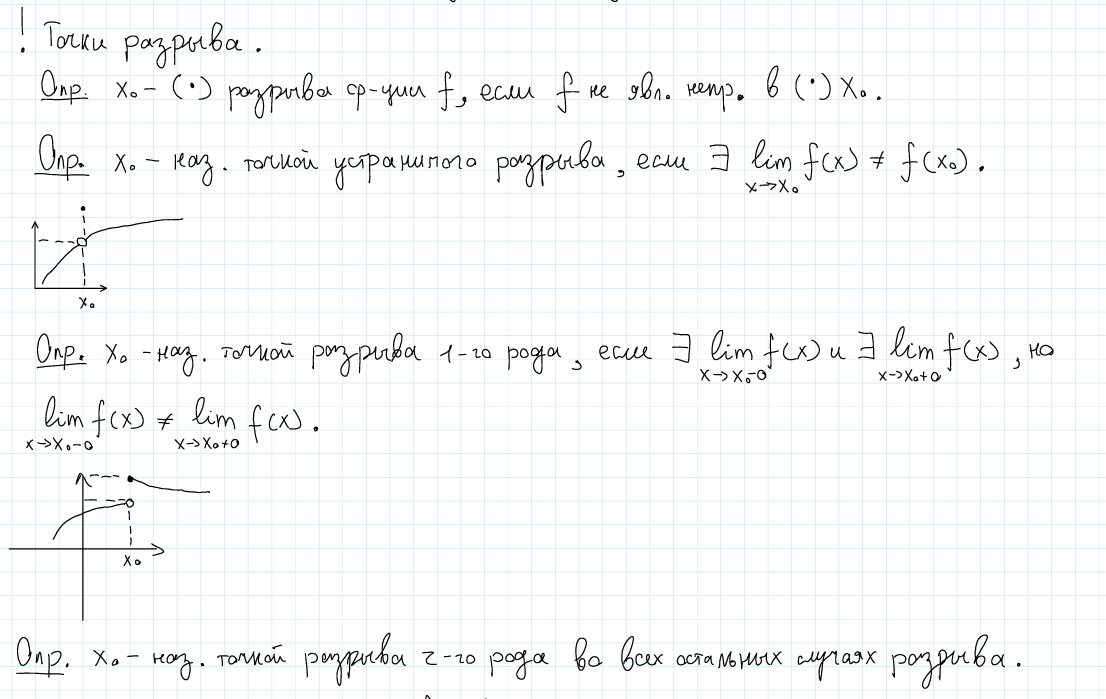 ! Точки разрыва.
Опр. x₀ – (·) разрыва ф-ции f, если f не явл. непр. в (·) x₀.
Опр. x₀ – наз. точкой устранимого разрыва, если ∃ lim f(x) ≠ f(x₀).
x→x₀
x₀
Опр. x₀ – наз. точкой разрыва 1-го рода, если ∃ lim f(x) и ∃ lim f(x), но
x→x₀-0 x→x₀+0
lim f(x) ≠ lim f(x).
x→x₀-0 x→x₀+0
x₀
Опр. x₀ – наз. точкой разрыва 2-го рода во всех остальных случаях разрыва.